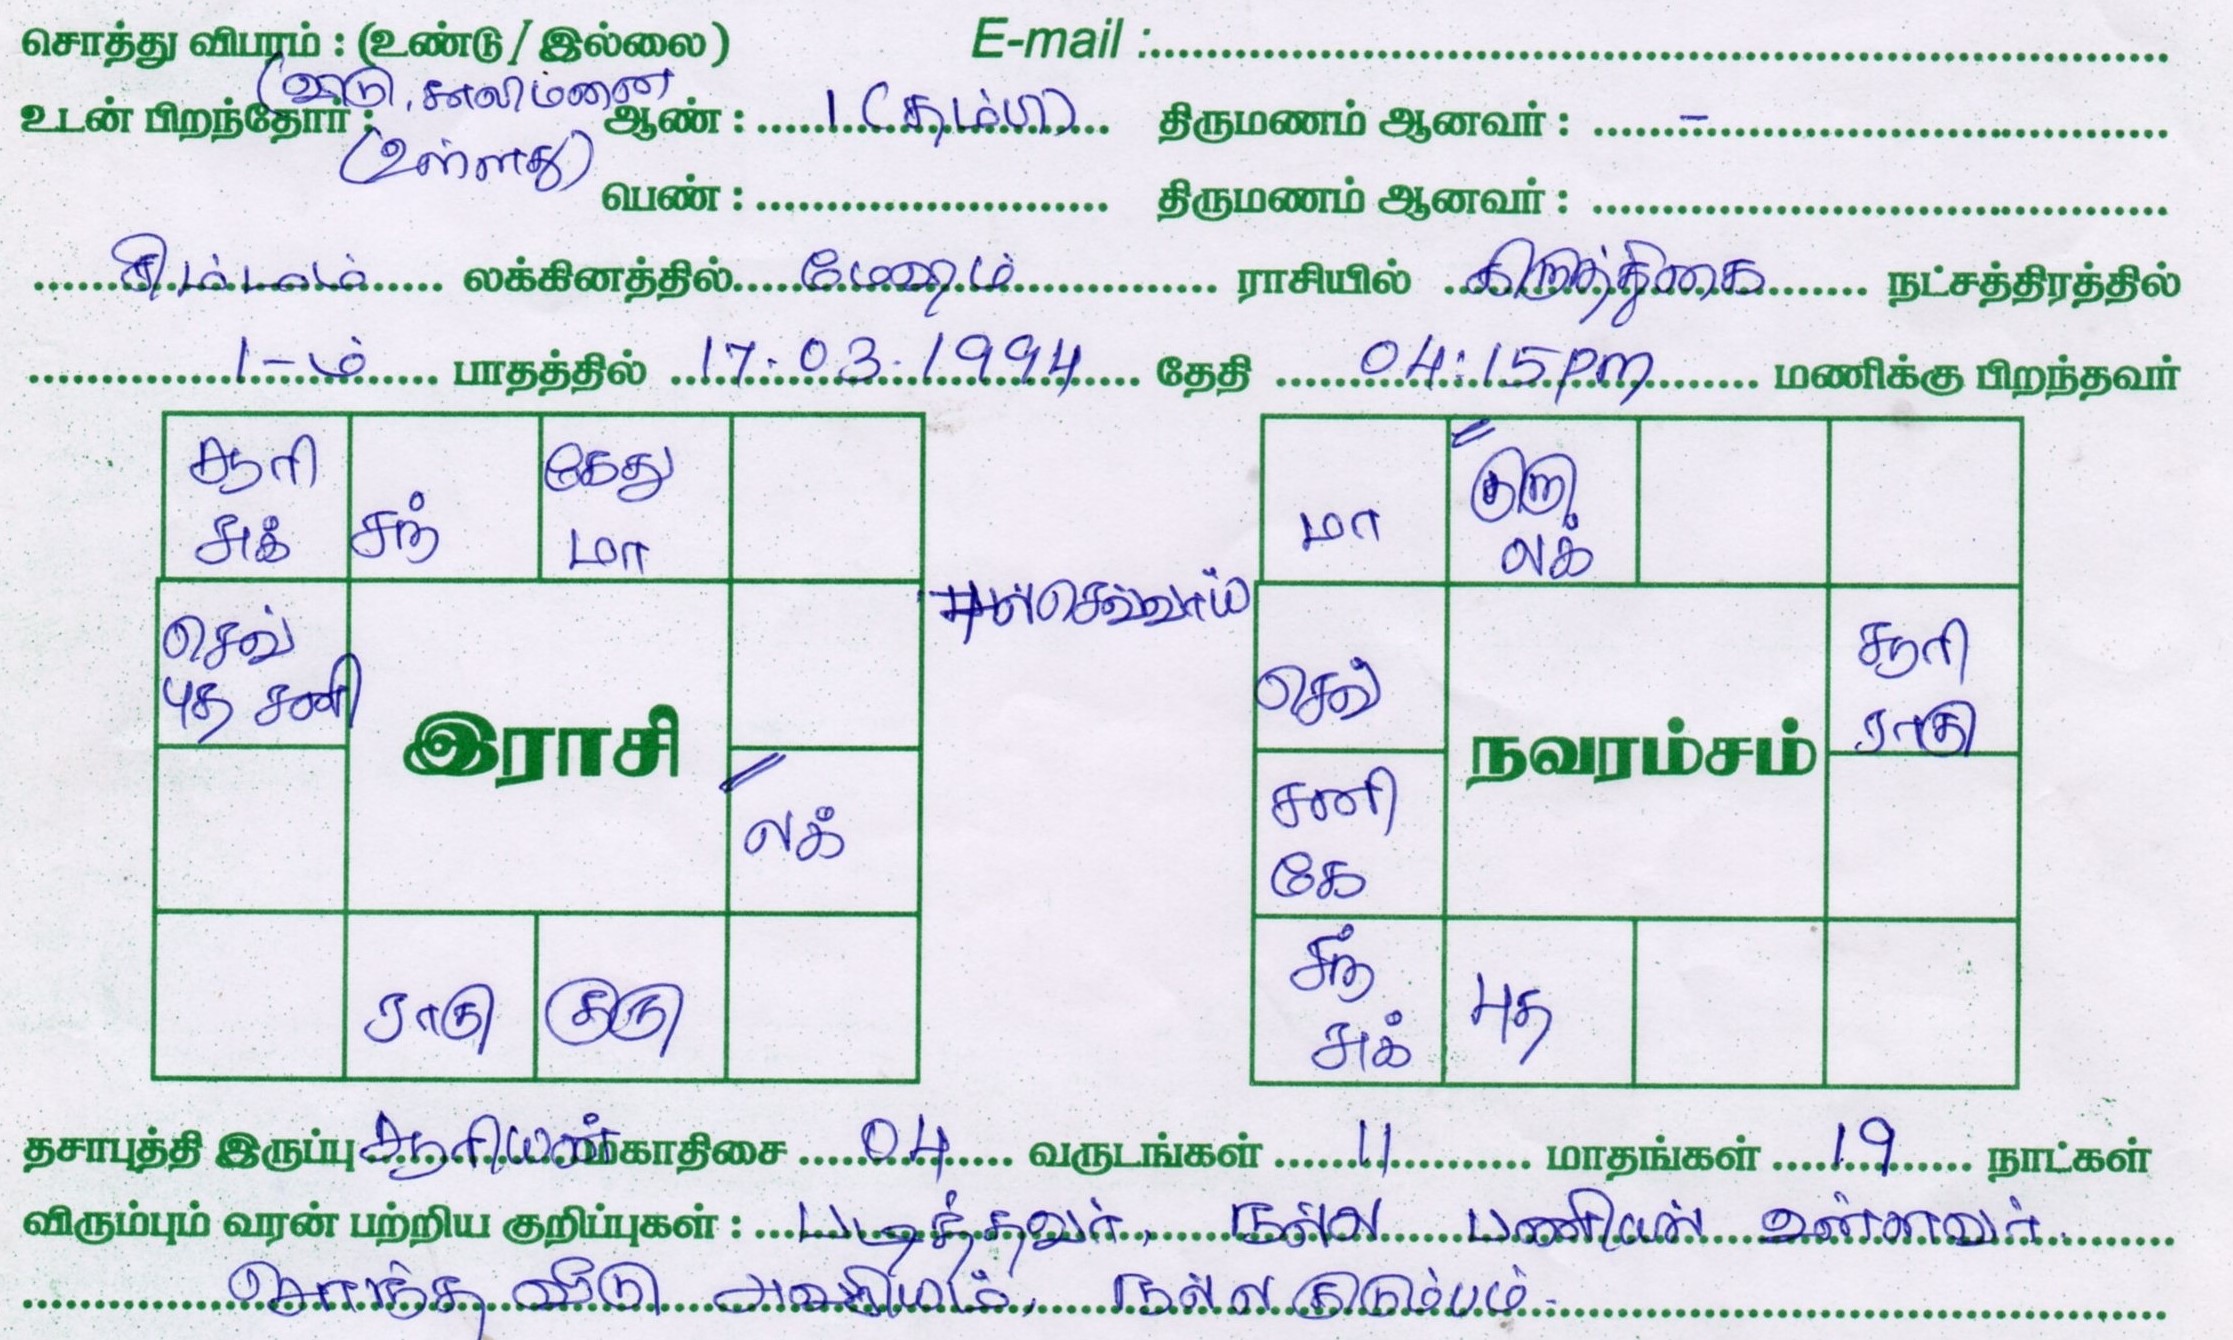 சொத்து விபரம் : (உண்டு / இல்லை) E-mail :
(வீடு, காலிமனை
உடன் பிறந்தோர் : ஆண் : 1 (தம்பி) திருமணம் ஆனவர் : -
(உள்ளது)
பெண் : திருமணம் ஆனவர் :
சிம்மம் லக்கினத்தில் மேஷம் ராசியில் கிருத்திகை நட்சத்திரத்தில்
1-ம் பாதத்தில் 17.03.1994 தேதி 04:15pm மணிக்கு பிறந்தவர்
சூரி சுக்
சந்
கேது மா
செவ் புத சனி
இராசி
லக்
ராகு
குரு
செவ்வாய்
மா
குரு லக்
செவ்
நவரம்சம்
சூரி ராகு
சனி கே
சந் சுக்
புத
தசாபுத்தி இருப்பு சூரியன் மகாதிசை 04 வருடங்கள் 11 மாதங்கள் 19 நாட்கள்
விரும்பும் வரன் பற்றிய குறிப்புகள் : படித்தவர், நல்ல பணியில் உள்ளவர்.
சொந்த வீடு அவசியம், நல்ல குடும்பம்.